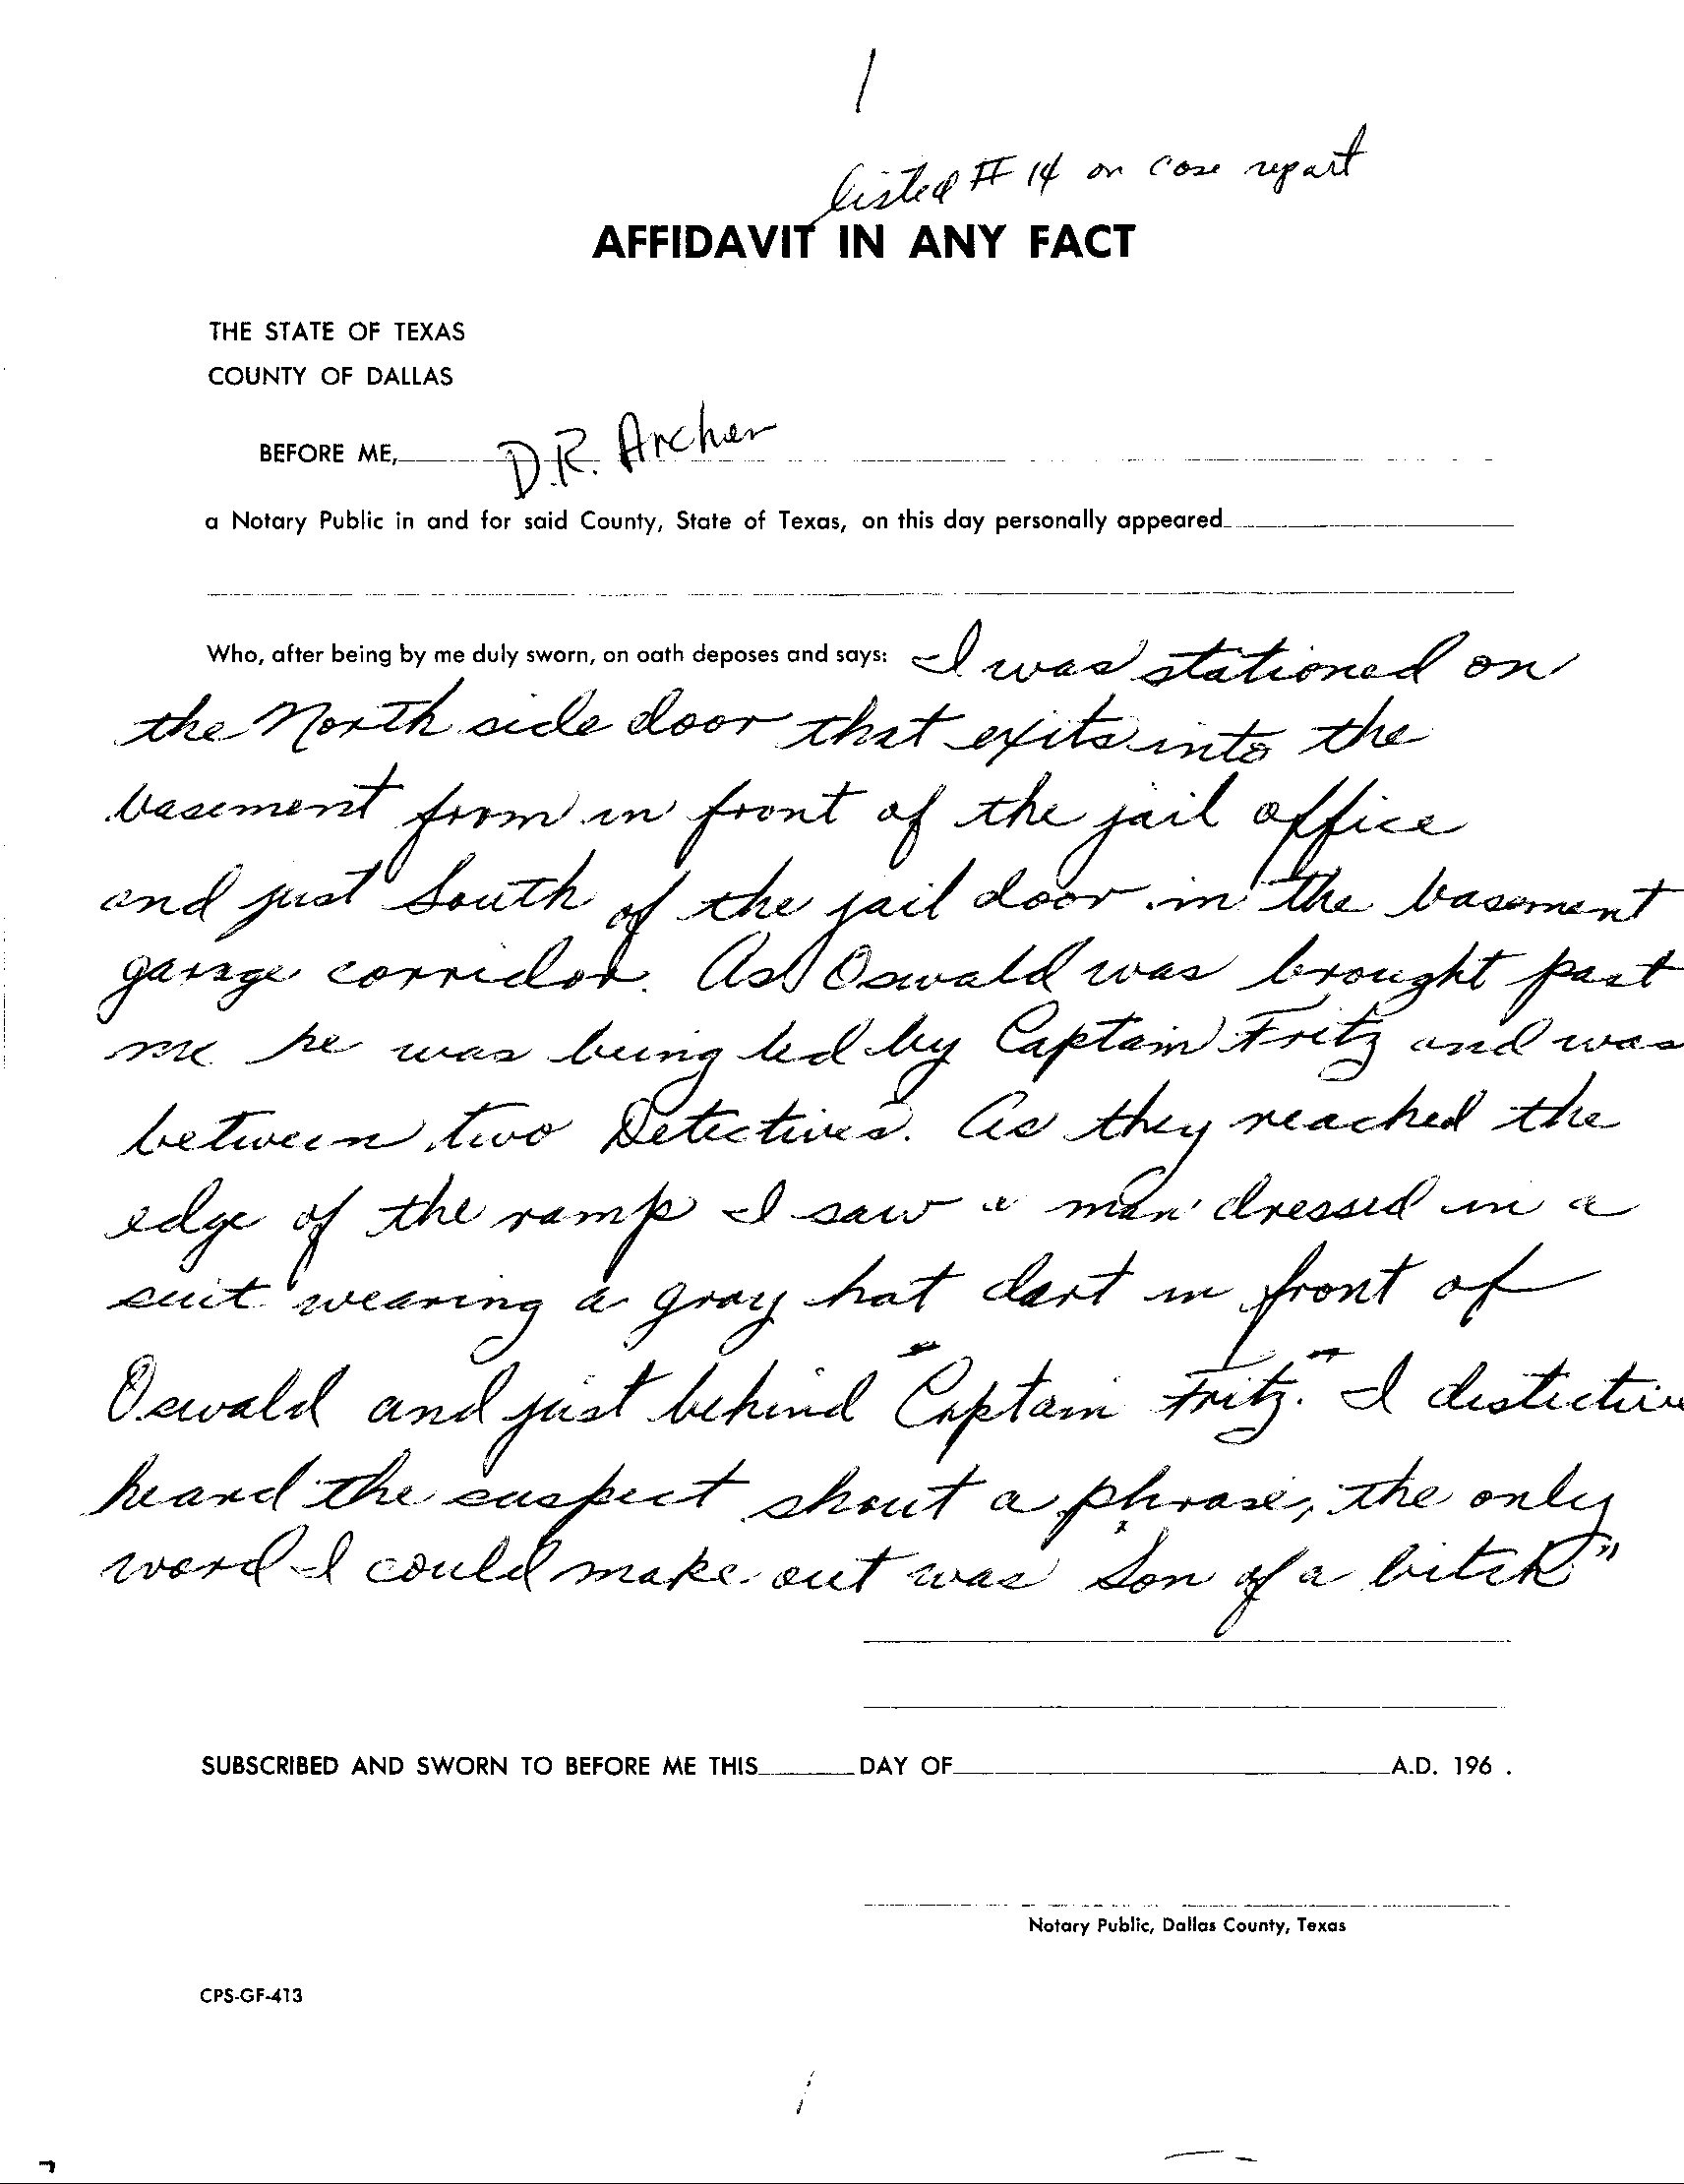 1
listed # 14 on case report
AFFIDAVIT IN ANY FACT
THE STATE OF TEXAS
COUNTY OF DALLAS
BEFORE ME, D.R. Archer
a Notary Public in and for said County, State of Texas, on this day personally appeared
Who, after being by me duly sworn, on oath deposes and says: I was stationed on
the North side door that exits into the
basement from in front of the jail office
and just South of the jail door in the basement
garage corridor. As Oswald was brought past
me he was being led by Captain Fritz and was
between two Detectives. As they reached the
edge of the ramp I saw a man dressed in a
suit wearing a gray hat dart in front of
Oswald and just behind "Captain Fritz." I
heard the suspect shout a phrase, the only
word I could make out was "Son of a bitch"
SUBSCRIBED AND SWORN TO BEFORE ME THIS DAY OF A.D. 196 .
Notary Public, Dallas County, Texas
CPS-GF-413